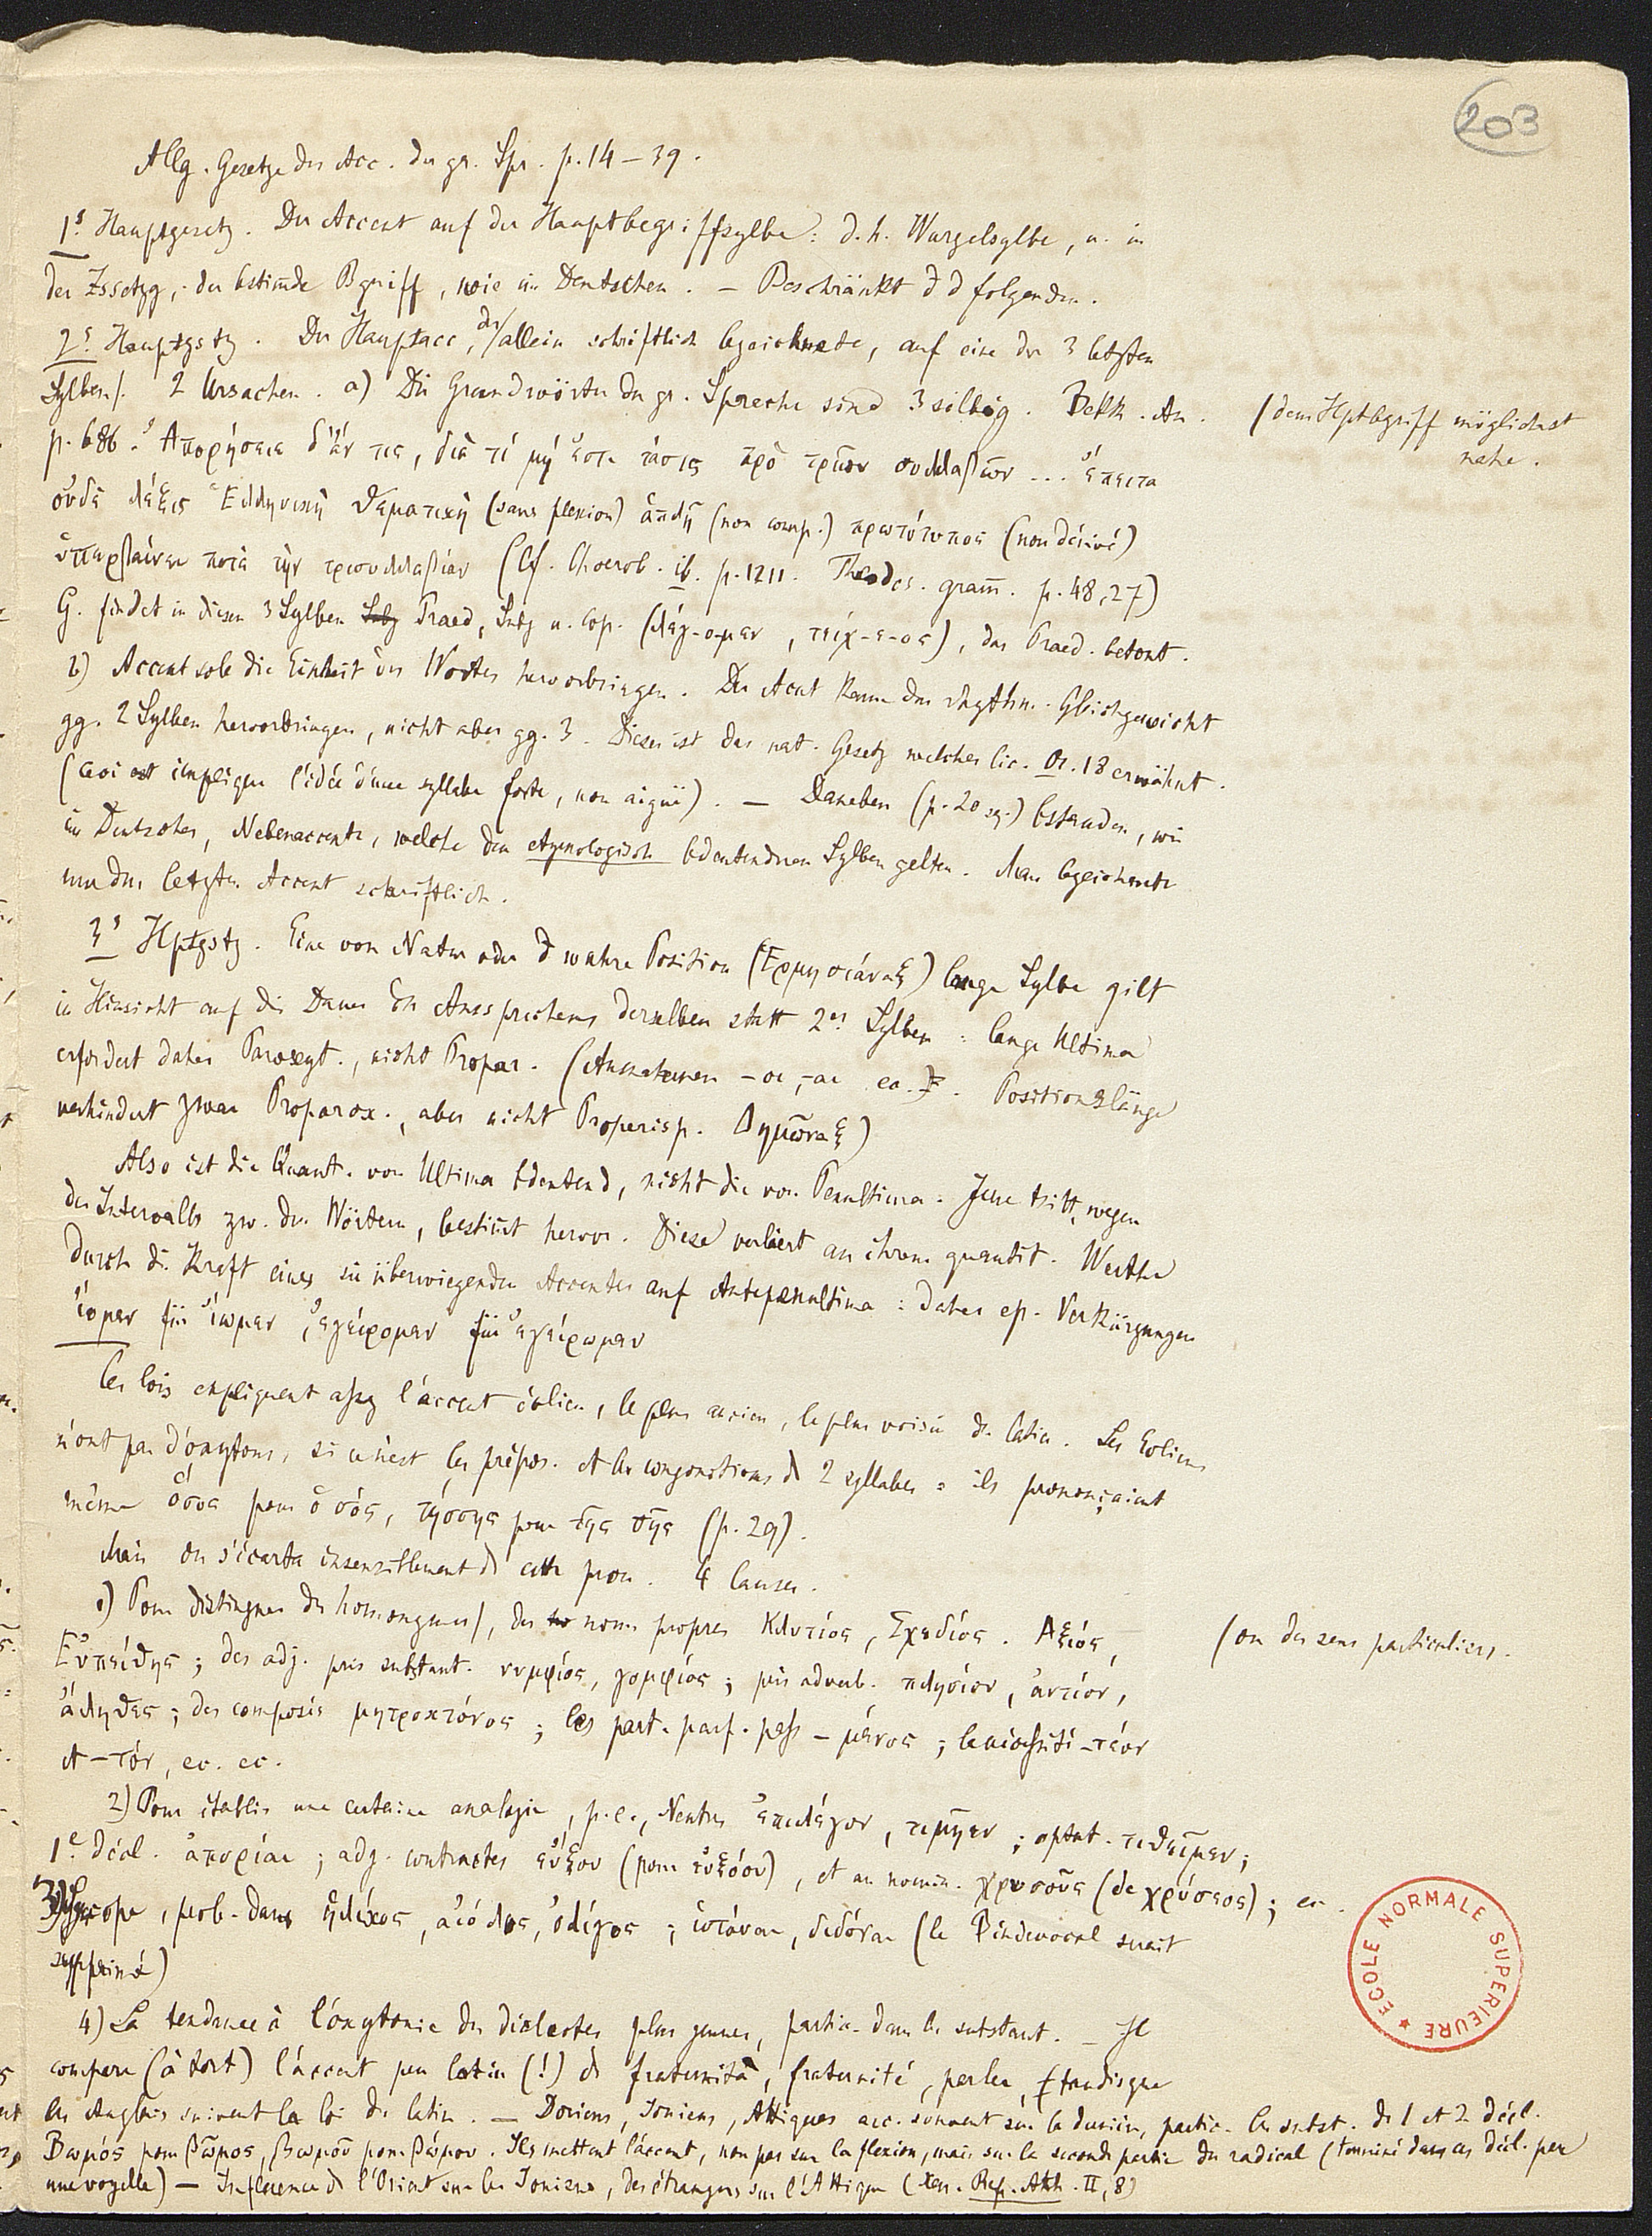 203
Allg. Gesetze des Acc. der gr. Spr. p. 14 – 39.
1s Hauptgesetz. Der Accent auf der Hauptbegriffsylbe: d. h. Wurzelsylbe, u. in
der Zssetzg, der bestimde Bgriff, wie im Deutschen. – Beschränkt d d folgenden.
2s Hauptgstz. Der Hauptacc, der allein schriftlich bezeichnete, auf eine der 3 letzten
Sylben/. 2 Ursachen. a) Die Grundwörter der gr. Sprache sind 3 silbig. Bekk. An.
(dem Hptbgriff möglichst
nahe.
p. 686. Ἀπορήσειε δ'ἄν τις, διὰ τί μή ἐστι τάσις πρὸ τριῶν συλλαβῶν ... ἔπειτα
οὐδὲ λέξις Ἑλληνικὴ θεματικὴ (sans flexion) ἁπλῆ (non comp.) πρωτότυπος (non dérivé)
ὑπερβαίνει ποτὲ τὴν τρισυλλαβίαν (Cf. Choerob. ib. p. 1211. Theodos. gram̄. p. 48, 27)
G. findet in diesen 3 Sylben Praed, Subj u. Cop. (λέγ-ο-μεν, τείχ-ε-ος), das Praed. betont.
b) Accent solle die Einheit des Wortes hervorbringen. Der Acut kann das rhythm. Gleichgewicht
gg. 2 Sylben hervorbringen, nicht aber gg. 3. Dieses ist das nat. Gesetz welches Cic. Or. 18 erwähnt.
(Ceci est implique l'idée d'une syllabe forte, non aiguë). – Daneben (p. 20 sq.) bstanden, wie
im Deutschen, Nebenaccente, welche den etymologisch bdeutenderen Sylben gelten. Man bezeichnete
nur den letzten Accent schriftlich.
3s Hptgstz. Eine von Natur oder d wahre Position (Ἑρμησιάναξ) lange Sylbe gilt
in Hinsicht auf die Dauer des Aussprechens derselben statt 2er Sylben: lange Ultima
erfordert daher Paroxyt., nicht Propar. (Ausnahmen -οι, -αι ec. Positionslänge
verhindert zwar Proparox., aber nicht Properisp. Δημῶναξ)
Also ist die Quant. von Ultima bdeutend, nicht die von Penultima. Jene tritt, wegen
des Intervalls zw. den Wörtern, bestimt hervor. Diese verliert an ihrem quantit. Werthe
durch die Kraft eines sie überwiegenden Accentes auf Antepenultima: daher ep. Verkürzungen
ἴομεν für ἴωμεν, ἐγείρομεν für ἐγείρωμεν
Ces lois expliquent assez l'accent éolien, le plus ancien, le plus voisin du latin. Les Eoliens
n'ont pas d'oxytons, si ce n'est les prépos. et les conjonctions de 2 syllabes: ils prononçaient
même ὄσος pour ὁ σός, τήσσης pour τῆς σῆς (p. 29).
Mais on s'écarta insensiblement de cette pron. 4 Causes.
1) Pour distinguer des homonymes/, des noms propres Κλυτίος, Σχεδίος. Ἀξιός,
(ou des sens particuliers.
Εὐπείθης; des adj. pris substant. νυμφίος, γομφίος; pris adverb. πλησίον, ἀντίον,
ἄληθες; des composés μητροκτόνος; les part. parf. pass – μένος; la nécessité -τέον
et -τόν, ec. ec.
2) Pour établir une certaine analogie, p. e., Neutres ἐπιλέγον, τιμῆεν; optat. τιθεῖμεν;
1e décl. ἀπορίαι; adj. contractes εὔξου (pour εὐξόου), et au nomin. χρυσοῦς (de χρύσεος); ec.
3) Syncope, prob. dans ἡλίκος, αἰόλος, ὀλίγος; ἱστάναι, διδόναι (le Bindevocal serait
supprimé)
4) La tendance à l'oxytonie des dialectes plus jeunes, partic. dans les substant. – Il
compare (à tort) l'accent peu latin (!) de fraternità, fraternité, parler, tandisque
les Anglais suivent la loi du latin. – Doriens, Ioniens, Attiques acc. souvent sur la dernière, partic. les subst. de 1 et 2 décl.
Βωμός pour βῶμος, βωμοῦ pour βώμου. Ils mettent l'accent, non pas sur la flexion, mais sur la seconde partie du radical (terminé dans ces décl. par
une voyelle) – Influence de l'Orient sur les Ioniens, des étrangers sur l'Attique (Xen. Rep. Ath. II, 8)
ECOLE NORMALE SUPERIEURE